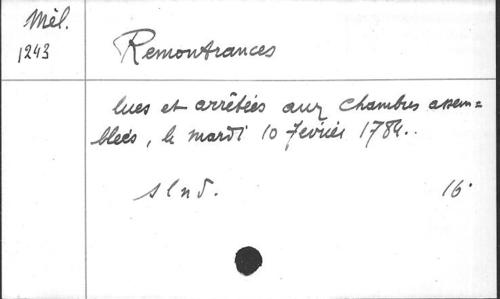 Mél.
1243
Remontrances
lues et arrêtées aux Chambres assem=
bleés, le mardi 10 février 1784..
s l n d.
16.